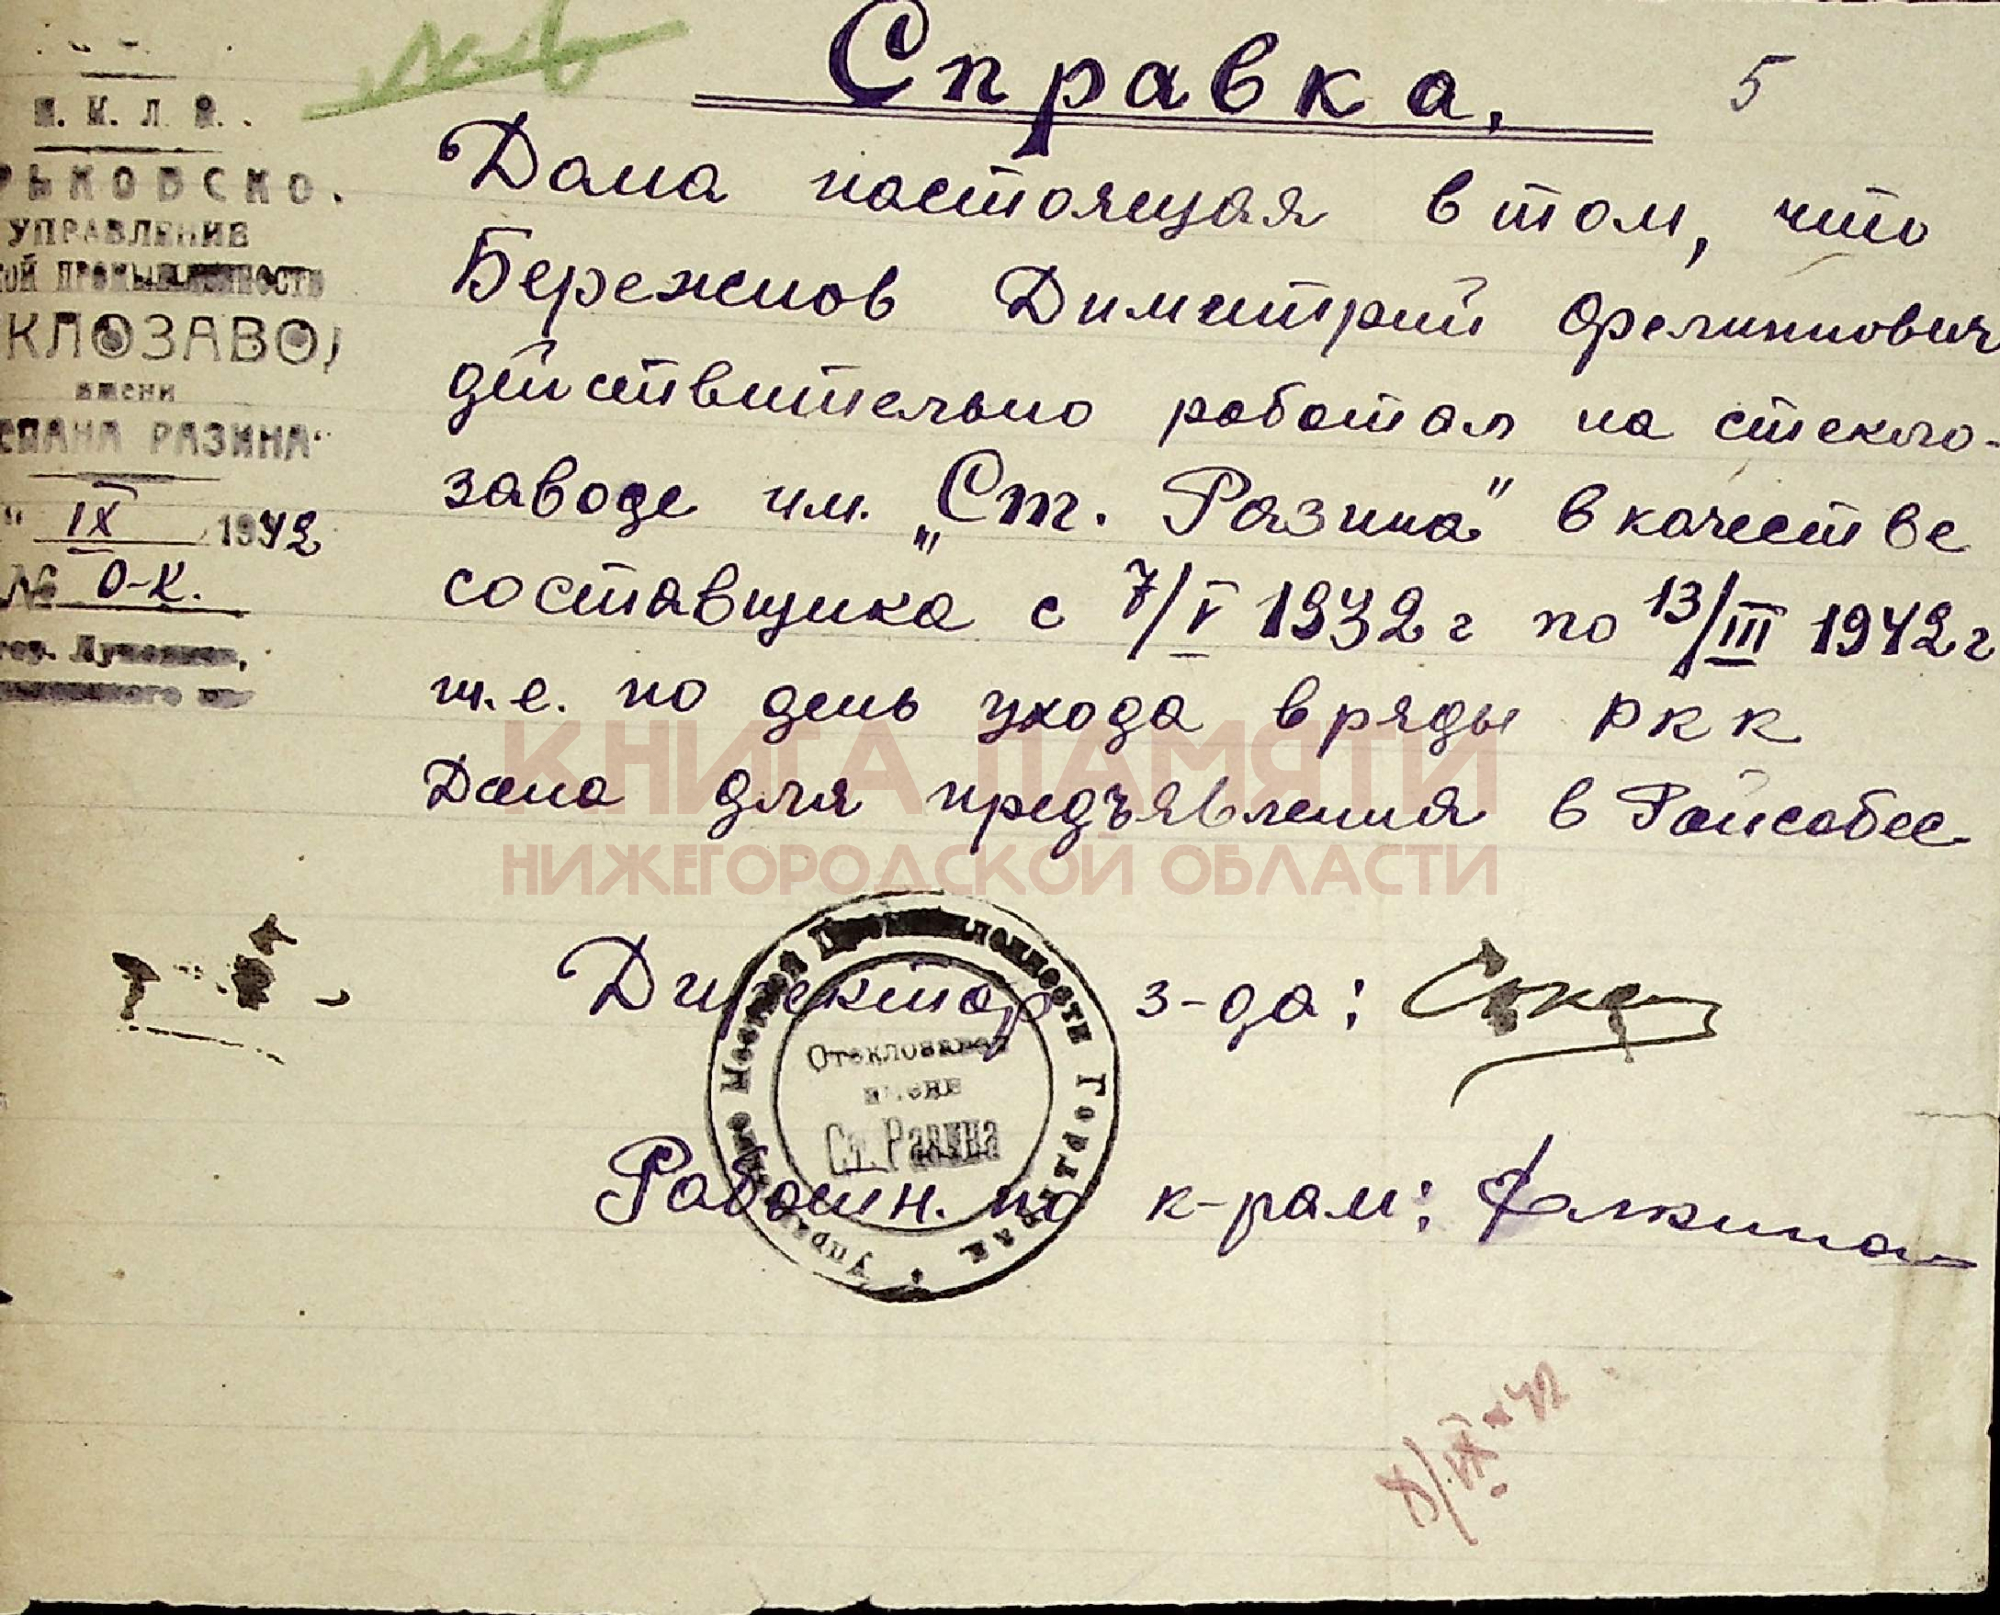 Справка.
5
Н. К. Л. П.
РЬКОВСКО.
УПРАВЛЕНИЕ
ОЙ ПРОМЫШЛЕННОСТИ
КЛОЗАВО
имени
ЕПАНА РАЗИНА
" IX 1942
№ О-К.
Дана настоящая в том, что
Бережнов Димитрий Филиппович
действительно работал на стекло-
заводе им. „Ст. Разина" в качестве
составщика с 7/V 1932 г по 13/III 1942 г
т.е. по день ухода в ряды РКК
Дана для предъявления в Райсобес
КНИГА ПАМЯТИ
НИЖЕГОРОДСКОЙ ОБЛАСТИ
Директор з-да:
Управление Местной Промышленности Горьк
Стеклозавод
имени
Ст. Разина
Работн. по к-рам:
8/IX-42